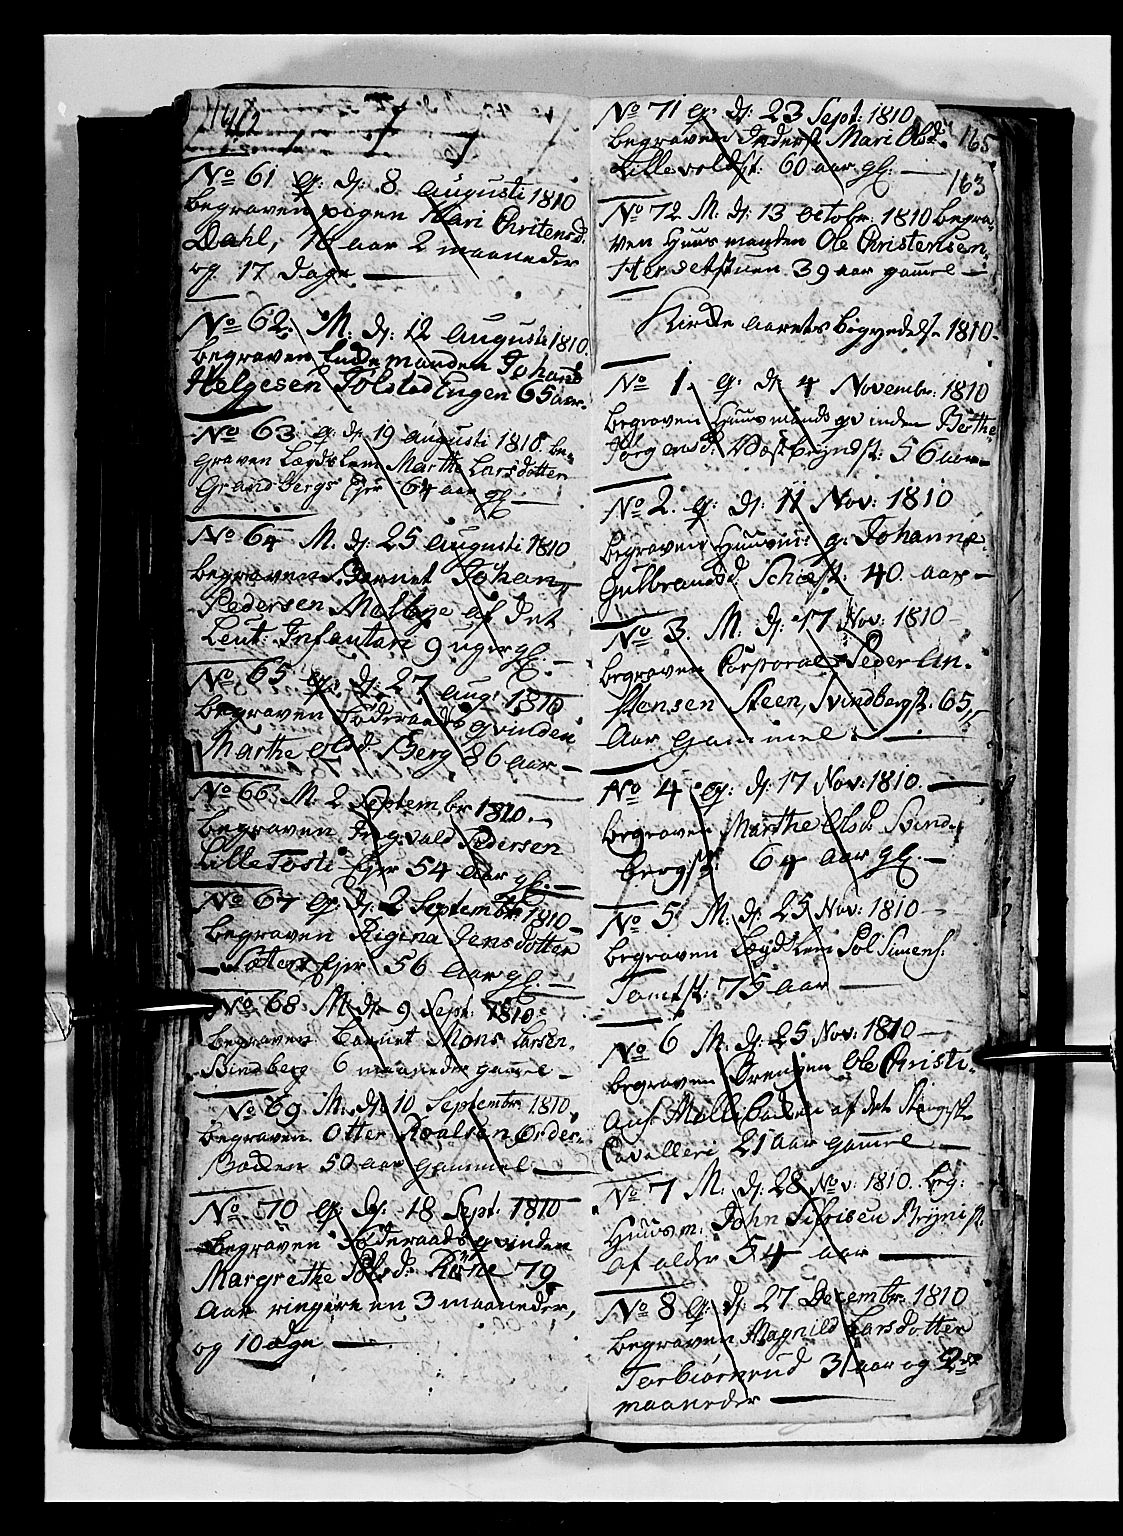 No 61 q: d: 8 Augusti 1810
begraven pigen Kari Christensd.
Dahl, 16 aar 2 maaneder
og 17 Dage
No 62. M. d: 12 Augusti 1810.
begraven Johans
Helgesen Tolstad Engen 65 aar.
No 63 q: d: 19 Augusti 1810. be-
graven Lægdslem Marthe Larsdotter
Grandbergs Ejer 64 aar gl.
No 64 M. d: 25 Augusti 1810
begraven Barnet Johan
Pedersen Melbye af det
Leut: Infanteri 9 uger gl.
No 65 q: d: 27 Aug: 1810
begraven Føderaads qvinden
Marthe Olsd. Berg 86 aar
No 66 M. 2 Septembr 1810.
begraven Ingvald Pedersen
Lille Tosti Ejer 54 aar gl.
No 67 q: d: 2 Septembr 1810
begraven Rigina Jensdotter
Ejer 56 aar gl.
No 68 M. d: 9 Sept: 1810
begraven Barnet Mons Larsen
6 maaneder gamel
No 69 M. d: 10 Septembr 1810
begraven Otter Roalsen
Bakken 50 aar gammel
No 70 q: d: 18 Sept: 1810
begraven Føderaads qvinden
Margrethe 79
aar ringere en 3 maaneder,
og 10 dage
No 71 q: d: 23 Sept: 1810
165
begraven Mari Olsd:
Lillevoldst: 60 aar gl.
163
No 72 M. d: 13 Octobr: 1810 begra-
ven Huusmanden Ole Christensen
39 aar gamel
Kirke aarets begyndelse 1810
No 1 q: d: 4 Novembr: 1810
begraven Huusmands qvinden Berthe
Jørgensd: 56 aar
No 2. q: d: 11 Nov: 1810
begraven Huusm: q: Johanne
Gulbrandsd. 40 aar
No 3. M. d: 17 Nov: 1810
begraven Corporal Peder An-
stensen Steen, Svindbergst: 65
aar gammel
No 4 q: d: 17 Nov: 1810.
begraven Marthe Olsd: Svind-
bergst: 64 aar gl.
No 5 M. d: 25 Nov: 1810
begraven Lægdslem Pol Simens:
Tomtst: 75 aar
No 6 M: d: 25 Nov: 1810
begraven Drengen Ole Christi-
ans: Mellebakken af det
Cavalleri 21 aar gamel
No 7 M. d: 28 Nov: 1810. beg:
Huusm: John
af alder 54 aar
No 8 q: d: 27 Decembr 1810
begraven Magnild Larsdotter
Torbiørnrud 31 aar og 2de
maaneder